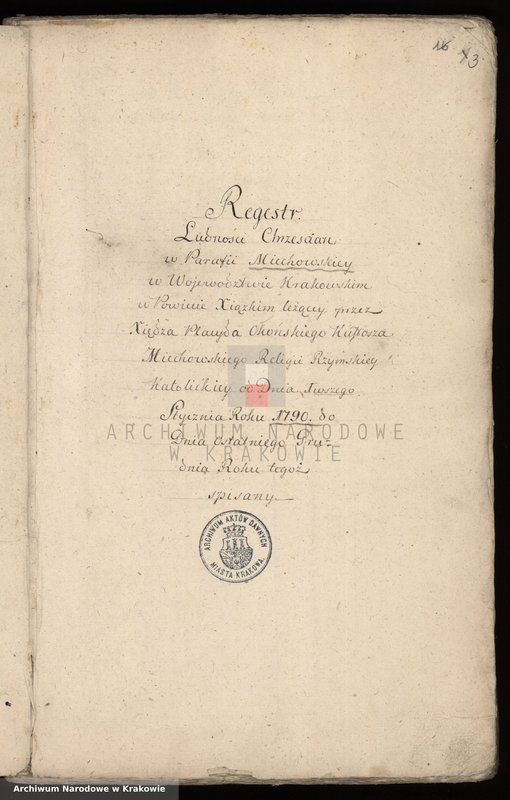 16
13
Regestr.
Ludności Chrzescian
w Parafii Miechowskiey
w Woiewodztwie Krakowskim
w Powicie Xiązkim leżący przez
Xiędza Placyda Okońskiego Kustosza
Miechowskiego Religii Rzymskiey
Katolickiey od Dnia 1wszego
Stycznia Roku 1790. do
Dnia ostatniego Gru-
dnia Roku tegoż
spisany
ARCHIWUM NARODOWE
W KRAKOWIE
ARCHIWUM AKTÓW DAWNYCH
MIASTA KRAKOWA
Archiwum Narodowe w Krakowie